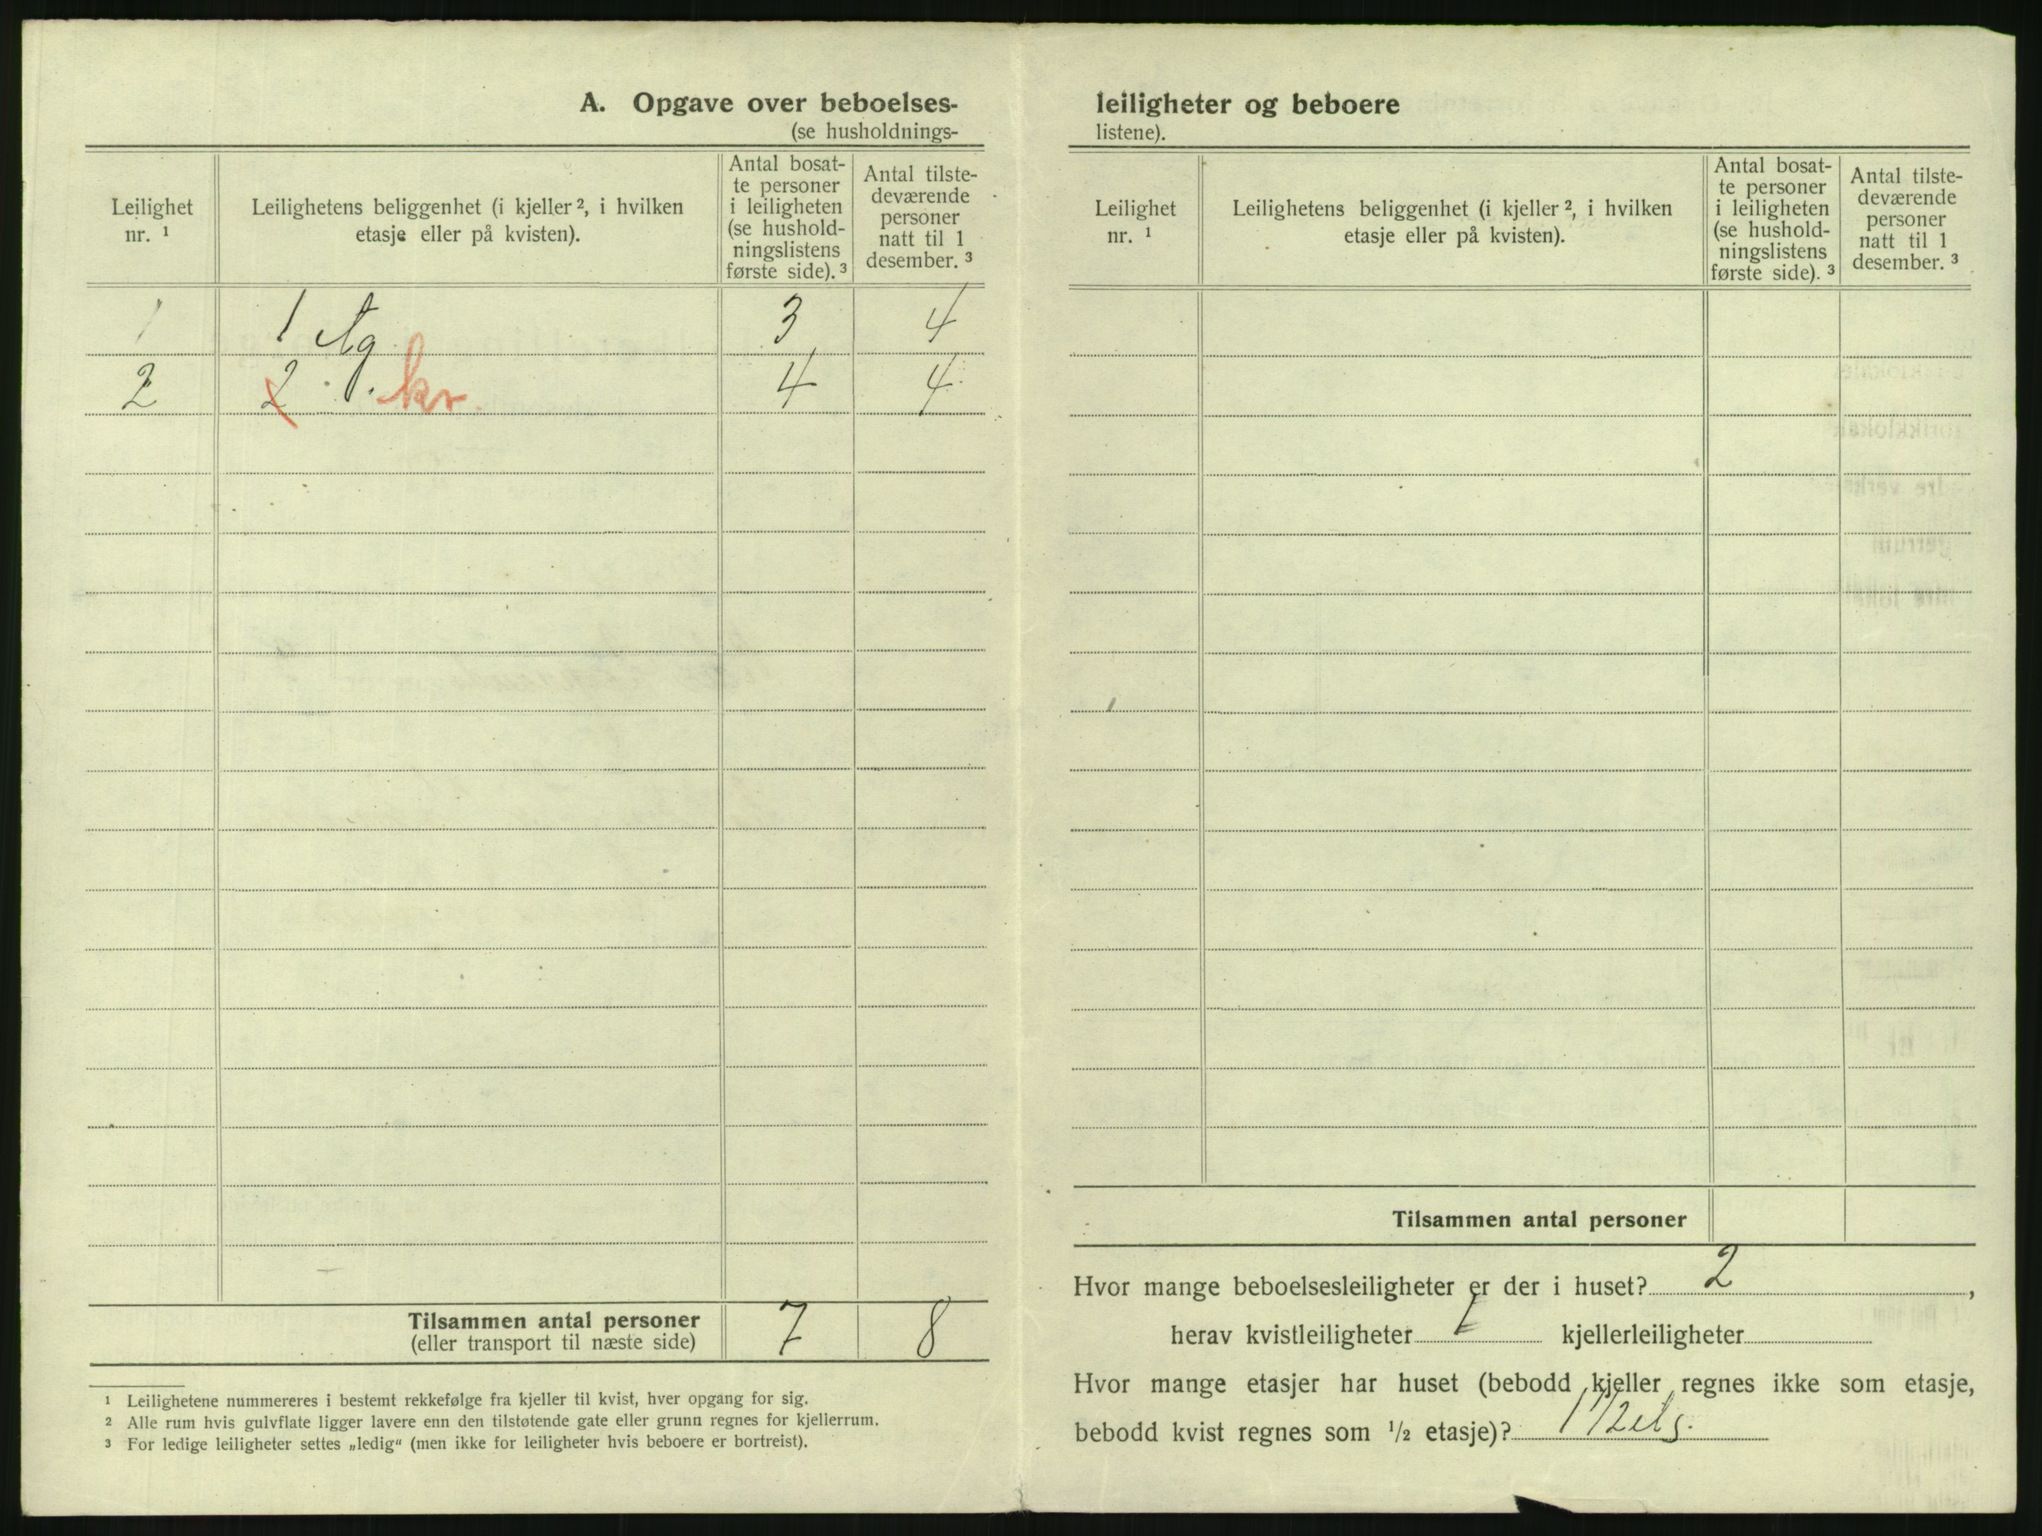 A. Opgave over beboelses-
(se husholdnings-
Leilighet
nr. ¹
Leilighetens beliggenhet (i kjeller ², i hvilken
etasje eller på kvisten).
Antal bosat-
te personer
i leiligheten
(se hushold-
ningslistens
første side). ³
Antal tilste-
deværende
personer
natt til 1
desember. ³
1 1 etg 3 4
2 2 kr. 4 4
Tilsammen antal personer
(eller transport til næste side)
7 8
¹ Leilighetene nummereres i bestemt rekkefølge fra kjeller til kvist, hver opgang for sig.
² Alle rum hvis gulvflate ligger lavere enn den tilstøtende gate eller grunn regnes for kjellerrum.
³ For ledige leiligheter settes „ledig“ (men ikke for leiligheter hvis beboere er bortreist).
leiligheter og beboere
listene).
Leilighet
nr. ¹
Leilighetens beliggenhet (i kjeller ², i hvilken
etasje eller på kvisten).
Antal bosat-
te personer
i leiligheten
(se hushold-
ningslistens
første side). ³
Antal tilste-
deværende
personer
natt til 1
desember. ³
Tilsammen antal personer
Hvor mange beboelsesleiligheter er der i huset? 2,
herav kvistleiligheter 1 kjellerleiligheter
Hvor mange etasjer har huset (bebodd kjeller regnes ikke som etasje,
bebodd kvist regnes som ½ etasje)? 1 1/2 etg.